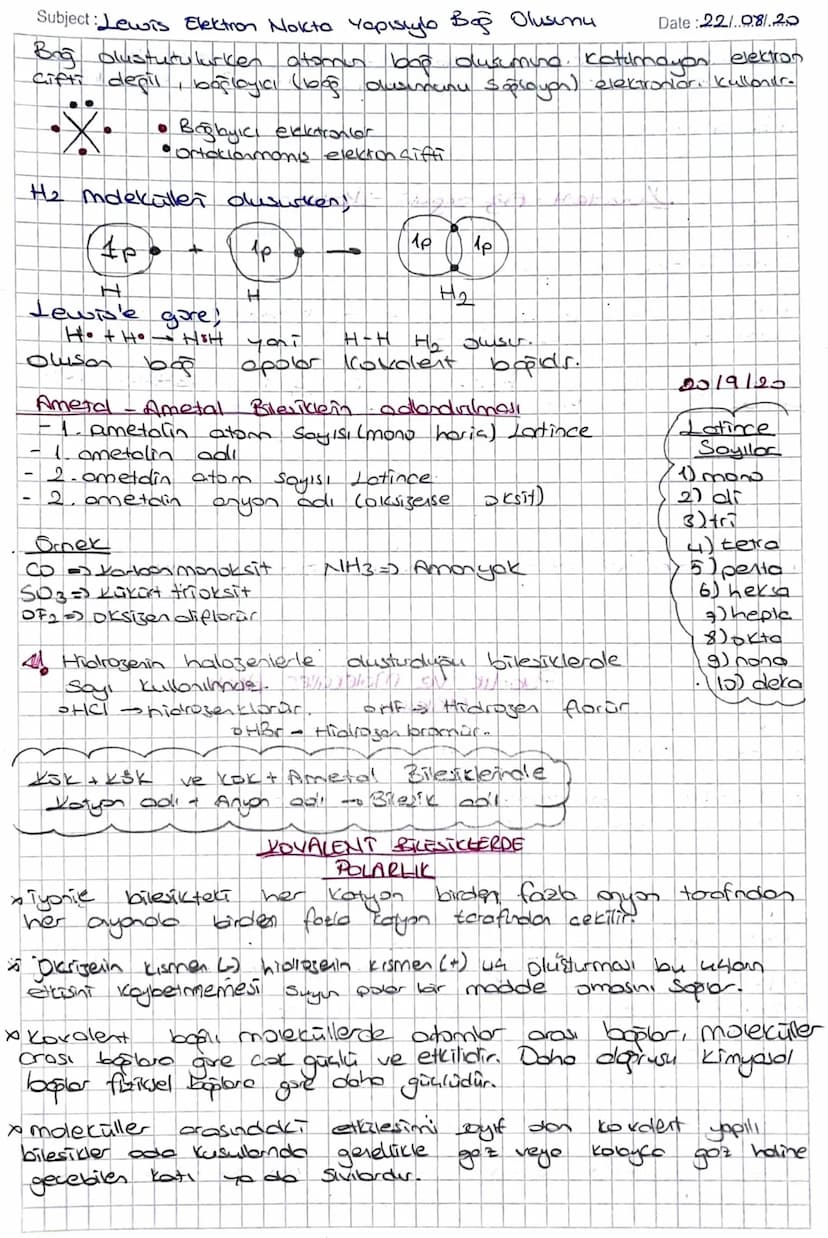 Subject : Lewis Elektron Nokta Yapısıyla Bağ Oluşumu
Date : 22/.08/.20
Bağ oluşturulurken atomun bağ oluşumuna katılmayan elektron
çifti değil, bağlayıcı (bağ oluşumunu sağlayan) elektronlar kullanılır.
X
• Bağlayıcı elektronlar
• ortaklanmamış elektron çifti
H2 molekülleri oluşurken;
1p + 1p → 1p 1p
H H H2
Lewis'e göre;
H• + H• → H:H yani H-H H2 oluşur.
Oluşan bağ apolar kovalent bağıdır.
20/9/20
Ametal - Ametal Bileşiklerin adlandırılması
- 1. ametalin atom sayısı (mono hariç) Latince
- 1. ametalin adı
- 2. ametalin atom sayısı Latince
- 2. ametalin anyon adı (oksijense oksit)
Latince
Sayılar
1) mono
2) di
3) tri
4) tetra
5) penta
6) heksa
7) hepta
8) okta
9) nona
10) deka
Örnek
CO => Karbonmonoksit NH3 => Amonyak
SO3 => Kükürt trioksit
OF2 => Oksijen diflorür
Hidrojenin halojenlerle oluşturduğu bileşiklerde
sayı kullanılmaz.
HCl → hidrojen klorür. HF → Hidrojen florür
HBr → Hidrojen bromür.
KöK + KöK ve KöK + Ametal Bileşiklerinde
Katyon adı + Anyon adı → Bileşik adı.
KOVALENT BİLEŞİKLERDE
POLARLIK
* İyonik bileşikteki her katyon birden fazla anyon tarafından
her anyonda birden fazla katyon tarafından çekilir.
* Oksijenin kısmen (-) hidrojenin kısmen (+) uç oluşturması bu uçların
etkisini kaybetmemesi suyun polar bir madde olmasını sağlar.
* Kovalent bağlı moleküllerde atomlar arası bağlar, moleküller
arası bağlara göre çok güçlü ve etkilidir. Daha doğrusu kimyasal
bağlar fiziksel bağlara göre daha güçlüdür.
* moleküller arasındaki etkileşimi zayıf olan kovalent yapılı
bileşikler oda koşullarında genellikle gaz veya kolayca gaz haline
geçebilen katı ya da sıvılardır.